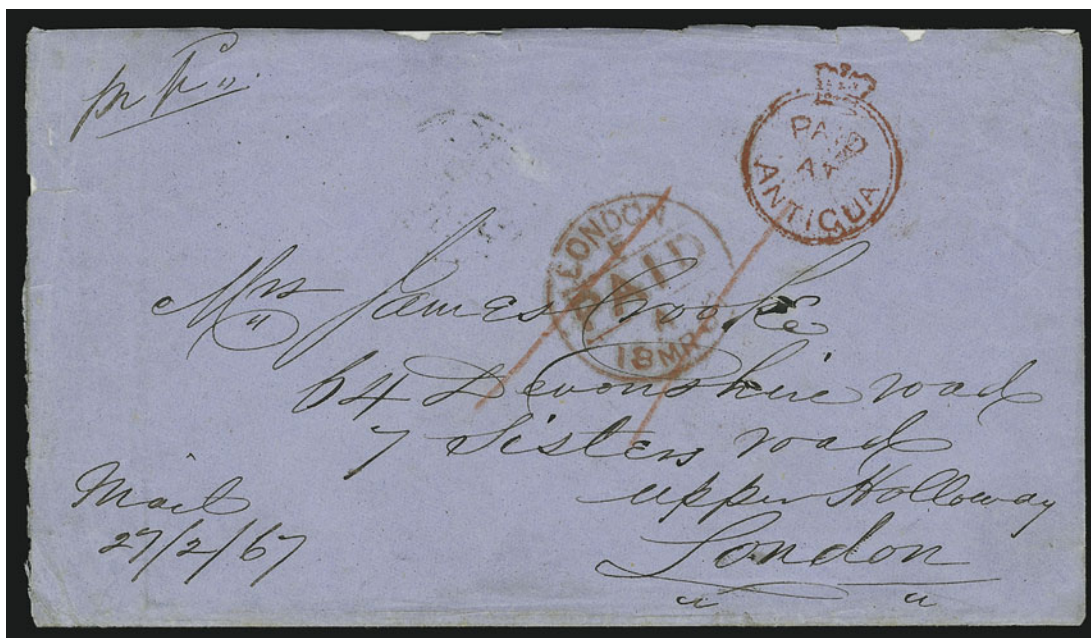 PAID
ANTIGUA
LONDON
PAID
18 MR
Mrs James Crooke
64 Devonshire road
7 Sisters road
upper Holloway
London
Mail
27/2/67